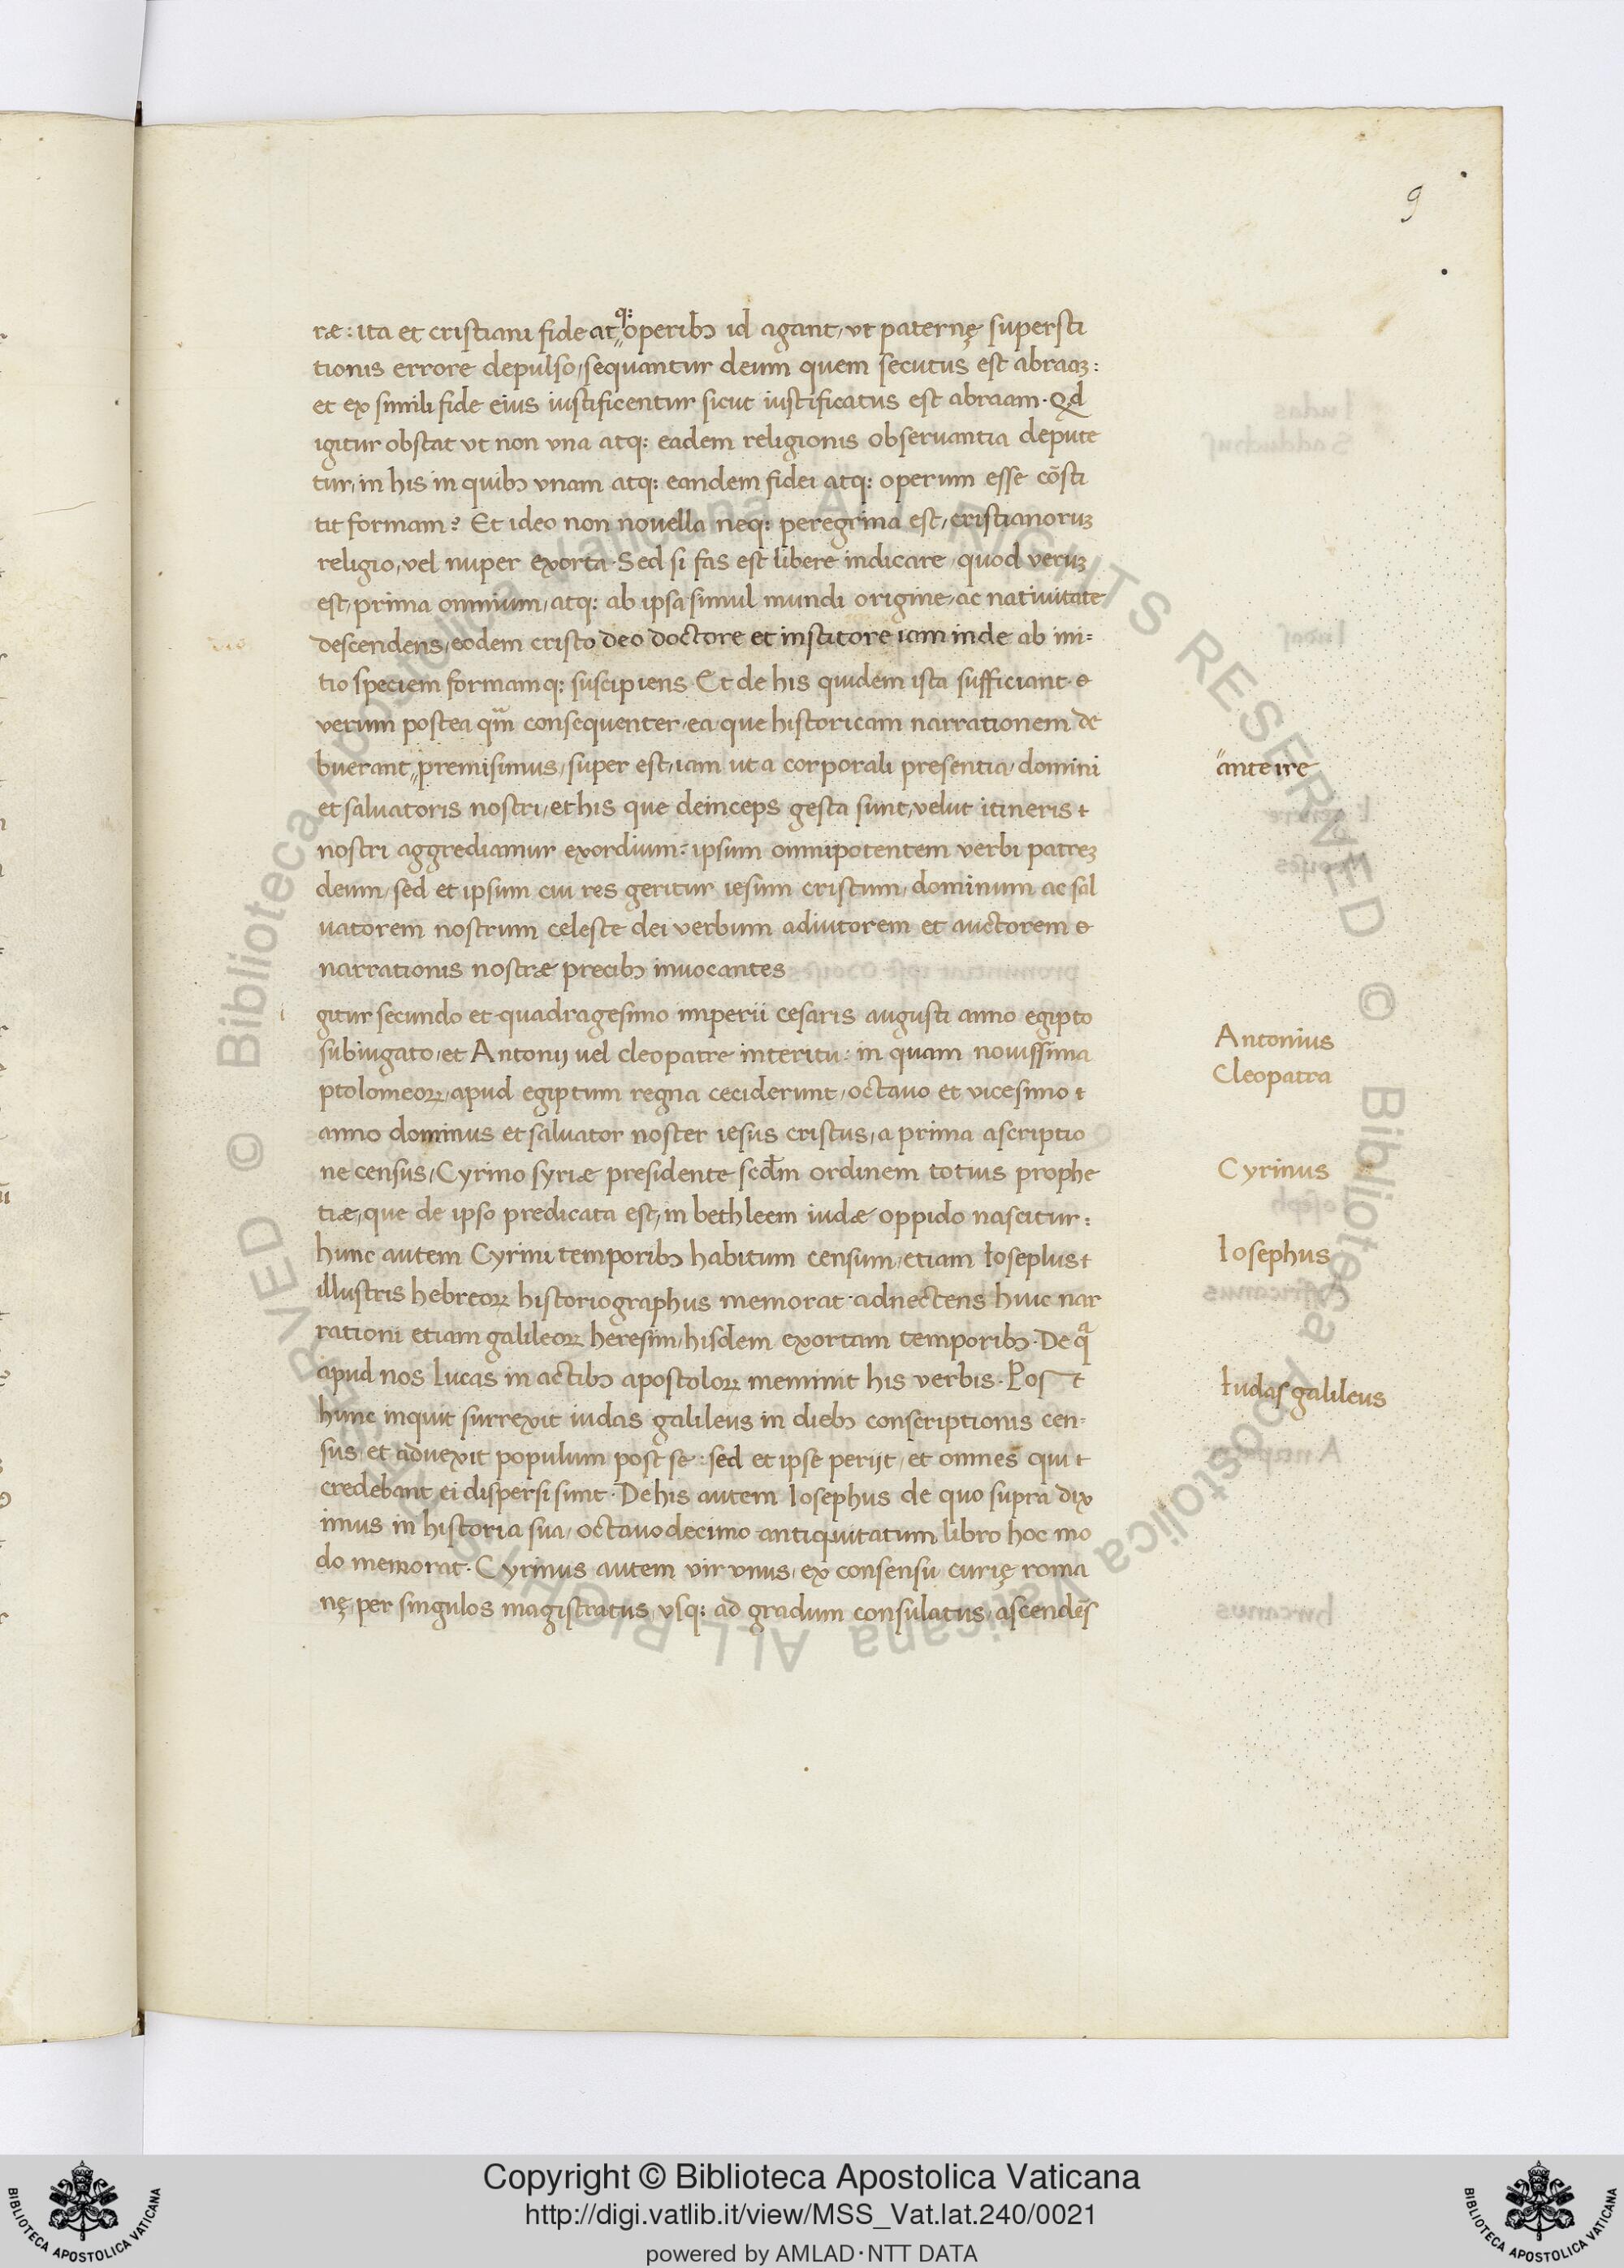 9
ræ: ita et cristiani fide atq: operibꝫ id agant, vt paternę supersti
tionis errore depulso, sequantur deum quem secutus est abraaꝫ:
et ex simili fide eius iustificentur sicut iustificatus est abraam. Qd
igitur obstat vt non vna atq: eadem religionis obseruantia depute
tur, in his in quibꝫ vnam atq: eandem fidei atq: operum esse cōsti
tit formam? Et ideo non nouella neq: peregrina est, cristianoruꝫ
religio, vel nuper exorta. Sed si fas est libere indicare, quod veruꝫ
est, prima omnium, atq: ab ipsa simul mundi origine, ac natiuitate
descendens, eodem cristo deo doctore et institore iam inde ab ini=
tio speciem formamq: suscipiens. Et de his quidem ista sufficiant.
verum postea qm̄ consequenter, ea que historicam narrationem de
buerant" premisimus, super est, iam ut a corporali presentia, domini
"anteire
et saluatoris nostri, et his que deinceps gesta sunt, velut itineris
nostri aggrediamur exordium: ipsum omnipotentem verbi patreꝫ
deum, sed et ipsum cui res geritur iesum cristum, dominum ac sal
uatorem nostrum celeste dei verbum adiutorem et auctorem
narrationis nostræ precibꝫ inuocantes
i gitur secundo et quadragesimo imperii cesaris augusti anno egipto
subiugato, et Antonij uel cleopatre interitu: in quam nouissima
Antonius
Cleopatra
ptolomeoꝝ, apud egiptum regna ceciderunt, octauo et vicesimo
anno dominus et saluator noster iesus cristus, a prima ascriptio
ne census, Cyrino syriæ presidente scd̄m ordinem totius prophe
Cyrinus
tiæ, que de ipso predicata est, in bethleem iudæ oppido nascitur:
hunc autem Cyrini temporibꝫ habitum censum, etiam Iosephus
Iosephus
illustris hebreoꝝ historiographus memorat. adnectens huic nar
rationi etiam galileoꝝ heresim, hisdem exortam temporibꝫ. De qª
apud nos lucas in actibꝫ apostoloꝝ meminit his verbis. Post
Iudas galileus
hunc inquit surrexit iudas galileus in diebꝫ conscriptionis cen-
sus, et aduexit populum post se: sed et ipse perijt, et omnes qui
credebant ei dispersi sunt. De his autem Iosephus de quo supra dix
imus in historia sua, octauodecimo antiquitatum libro hoc mo
do memorat. Cyrinus autem vir vnus, ex consensu curię roma
nę, per singulos magistratus, vsq: ad gradum consulatus, ascendēs
Copyright © Biblioteca Apostolica Vaticana
http://digi.vatlib.it/view/MSS_Vat.lat.240/0021
powered by AMLAD·NTT DATA
BIBLIOTECA APOSTOLICA VATICANA
BIBLIOTECA APOSTOLICA VATICANA
© Biblioteca Apostolica Vaticana ALL RIGHTS RESERVED © Biblioteca Apostolica Vaticana ALL RIGHTS RESERVED